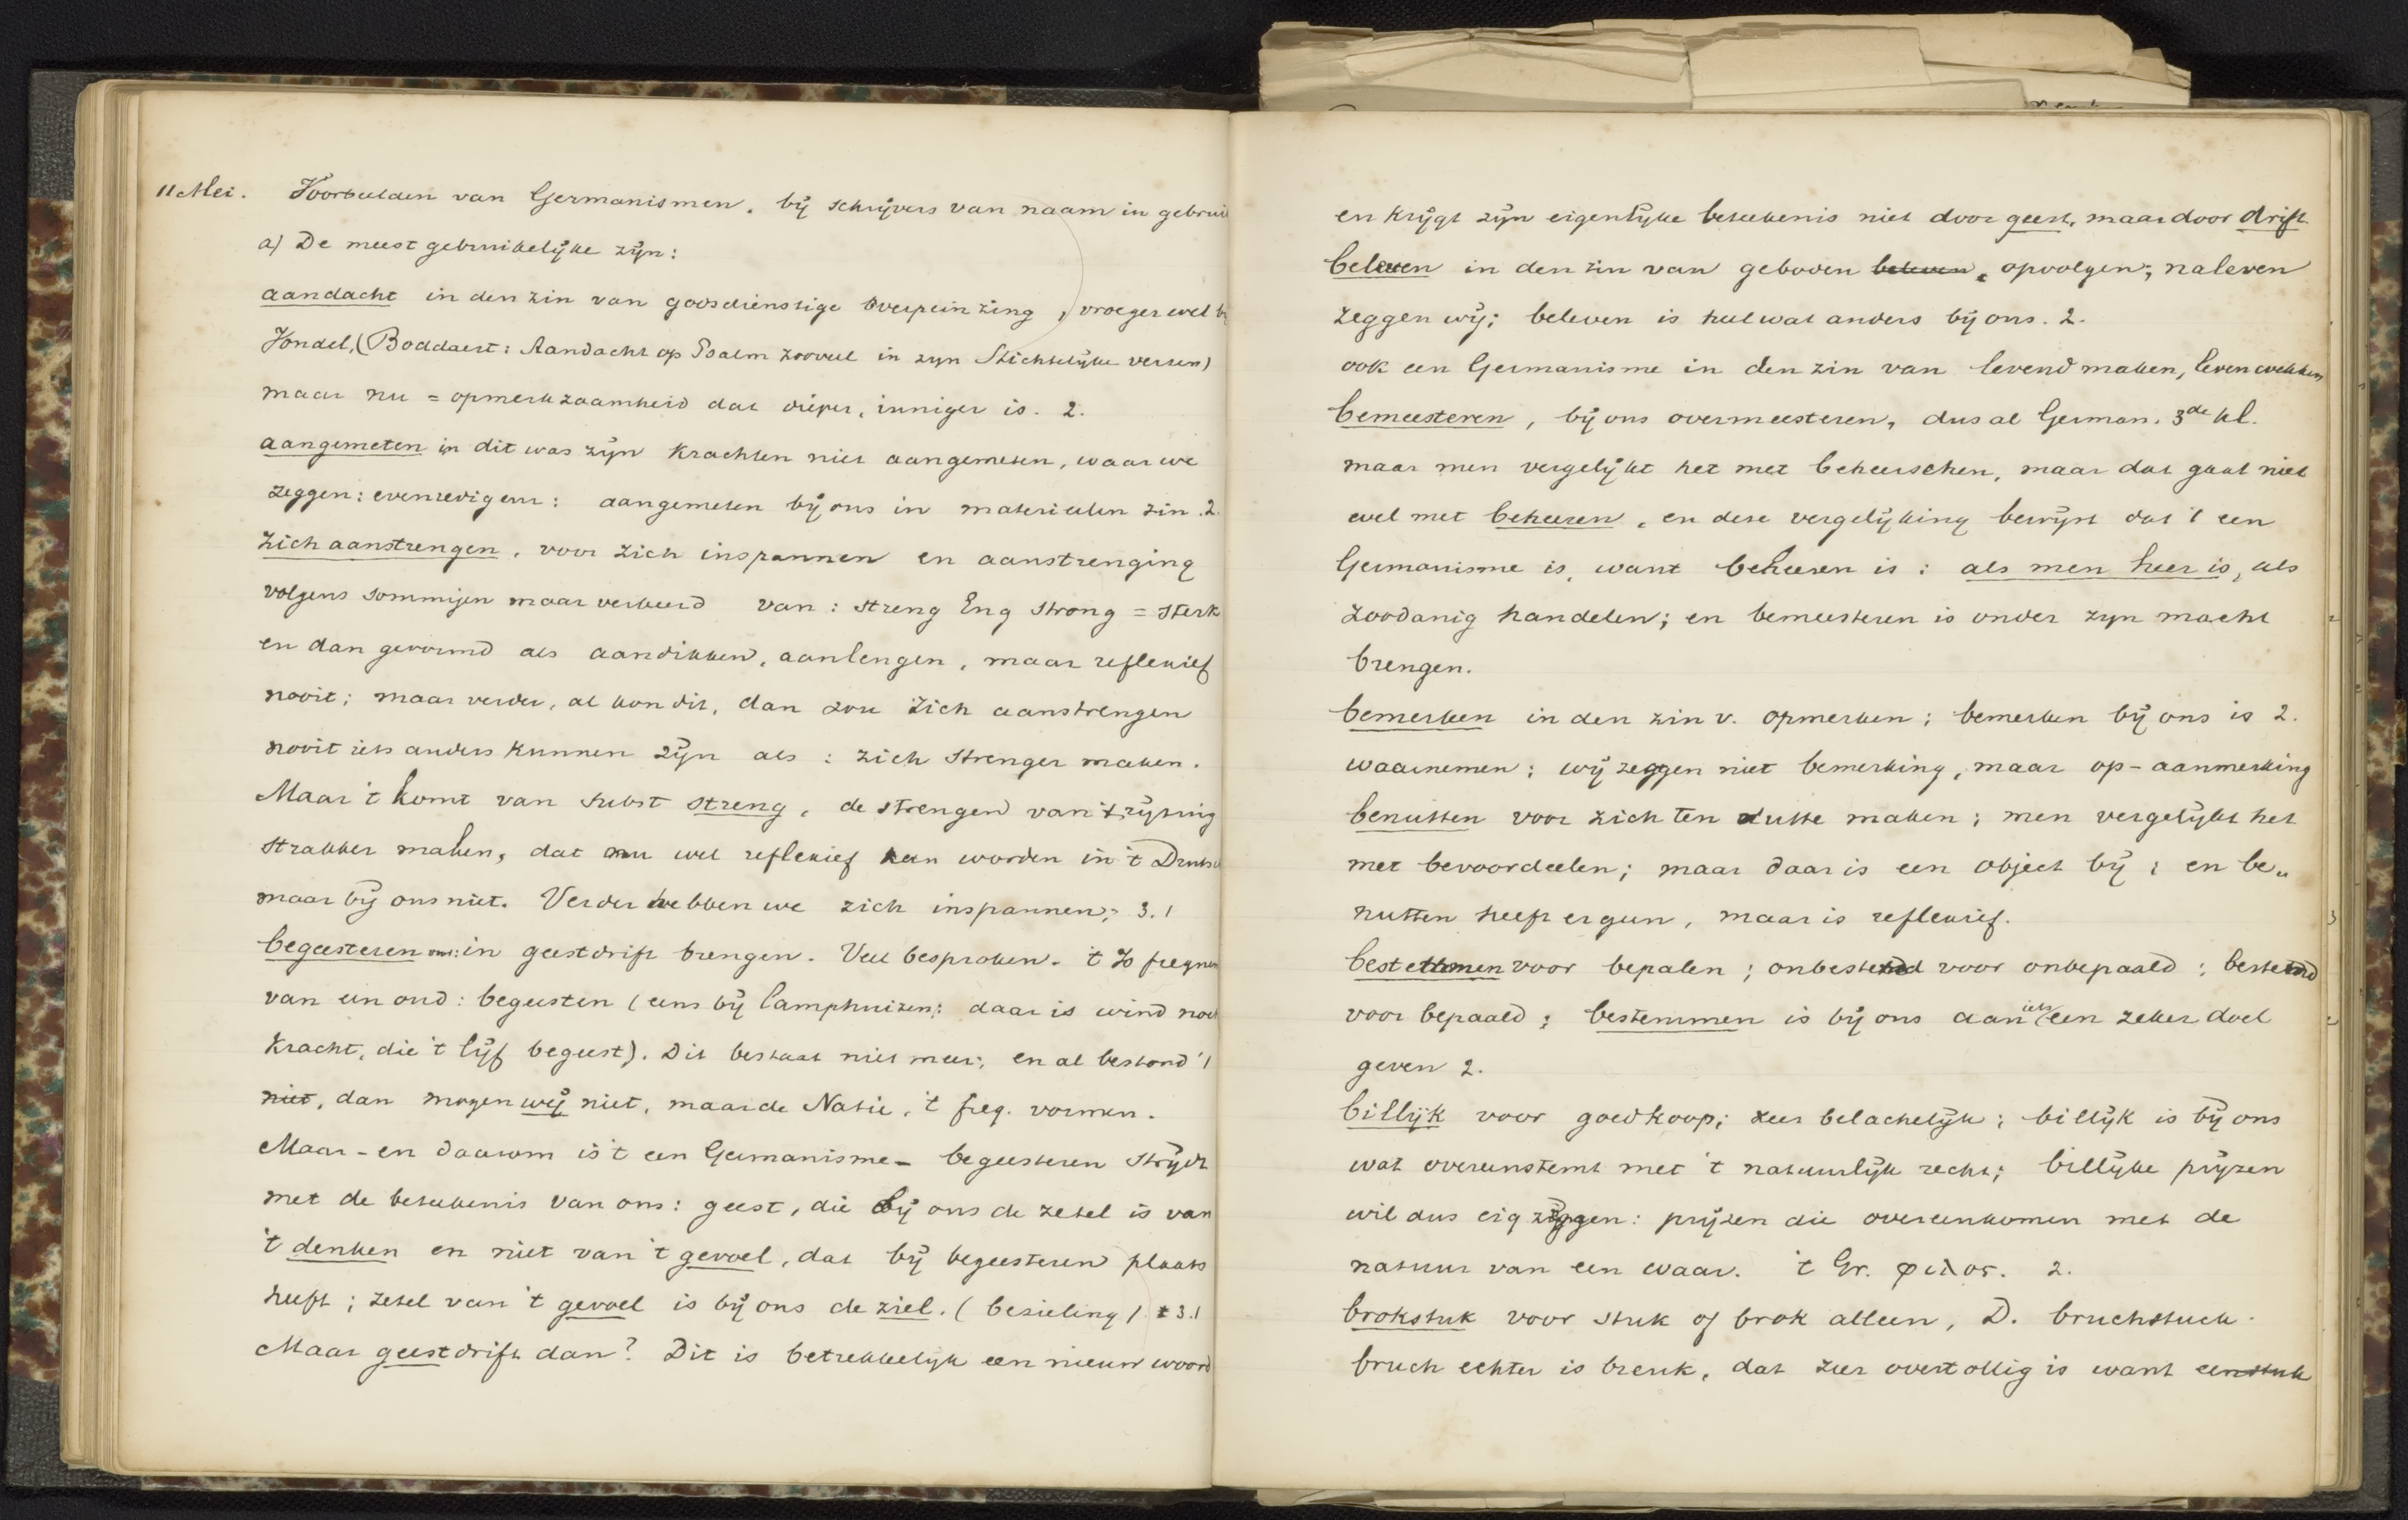 11 Mei. Voorbeelden van Germanismen, bij schrijvers van naam in gebruik
a) De meest gebruikelijke zijn:
aandacht in den zin van godsdienstige overpeinzing, vroeger wel bij
Vondel, (Boddaert: Aandacht op Psalm zooveel in zyn Stichtelijke verzen)
maar nu = opmerkzaamheid dat dieper, inniger is. 2.
aangemeten in dit was zijn krachten niet aangemeten, waar we
zeggen: evenredig aan: aangemeten bij ons in materieelen zin. 2.
Zich aanstrengen, voor zich inspannen en aanstrenging
volgens sommigen maar verkeerd van: streng Eng strong = sterk
en dan gevormd als aandikken, aanlengen, maar reflexief
nooit; maar verder, al kon dit, dan zou zich aanstrengen
nooit iets anders kunnen zijn als: zich strenger maken.
Maar 't komt van subst streng, de strengen van 't rijtuig
strakker maken, dat nu wel reflexief kan worden in 't Duitsch
maar bij ons niet. Verder hebben we zich inspannen; 3.1
begeesteren ons: in geestdrift brengen. Veel besproken. 't Zo freqnen
van een oud: begeesten (eens bij Camphuizen: daar is wind noch
kracht, die 't lijf begeest). Dit bestaat niet meer; en al bestond 't
niet, dan mogen wij niet, maar de Natie, 't freq. vormen.
Maar - en daarom is 't een Germanisme - begeesteren strijdt
met de beteekenis van ons: geest, die bij ons de zetel is van
't denken en niet van 't gevoel, dat bij begeesteren plaats
heeft; zetel van 't gevoel is bij ons de ziel. (bezieling) 3.1
Maar geestdrift dan? Dit is betrekkelijk een nieuw woord
en krijgt zijn eigenlijke beteekenis niet door geest, maar door drift
beleven in den zin van geboden beleven, opvolgen; naleven
zeggen wij; beleven is heel wat anders bij ons. 2.
ook een Germanisme in den zin van levend maken, leven wekken
bemeesteren, bij ons overmeesteren, dus al German. 3de kl.
maar men vergelijkt het met beheerschen, maar dat gaat niet
wel met beheeren, en deze vergelijking bewijst dat 't een
Germanisme is, want beheeren is: als men heer is, als
zoodanig handelen; en bemeesteren is onder zyn macht
brengen.
bemerken in den zin v. opmerken; bemerken bij ons is 2.
waarnemen; wij zeggen niet bemerking, maar op-aanmerking
benutten voor zich ten nutte maken; men vergelijkt het
met bevoordeelen; maar daar is een object bij; en be„
nutten heeft er geen, maar is reflexief.
bestemmen voor bepalen; onbestemd voor onbepaald; bestemd
voor bepaald; bestemmen is bij ons aan iets een zeker doel
geven 2.
billijk voor goedkoop; zeer belachelijk; billijk is bij ons
wat overeenstemt met 't natuurlijk recht; billijke prijzen
wil dus eig zeggen: prijzen die overeenkomen met de
natuur van een waar. 't Gr. φιλος. 2.
brokstuk voor stuk of brok alleen, D. bruchstuck.
bruch echter is breuk, dat zeer overtollig is want een stuk